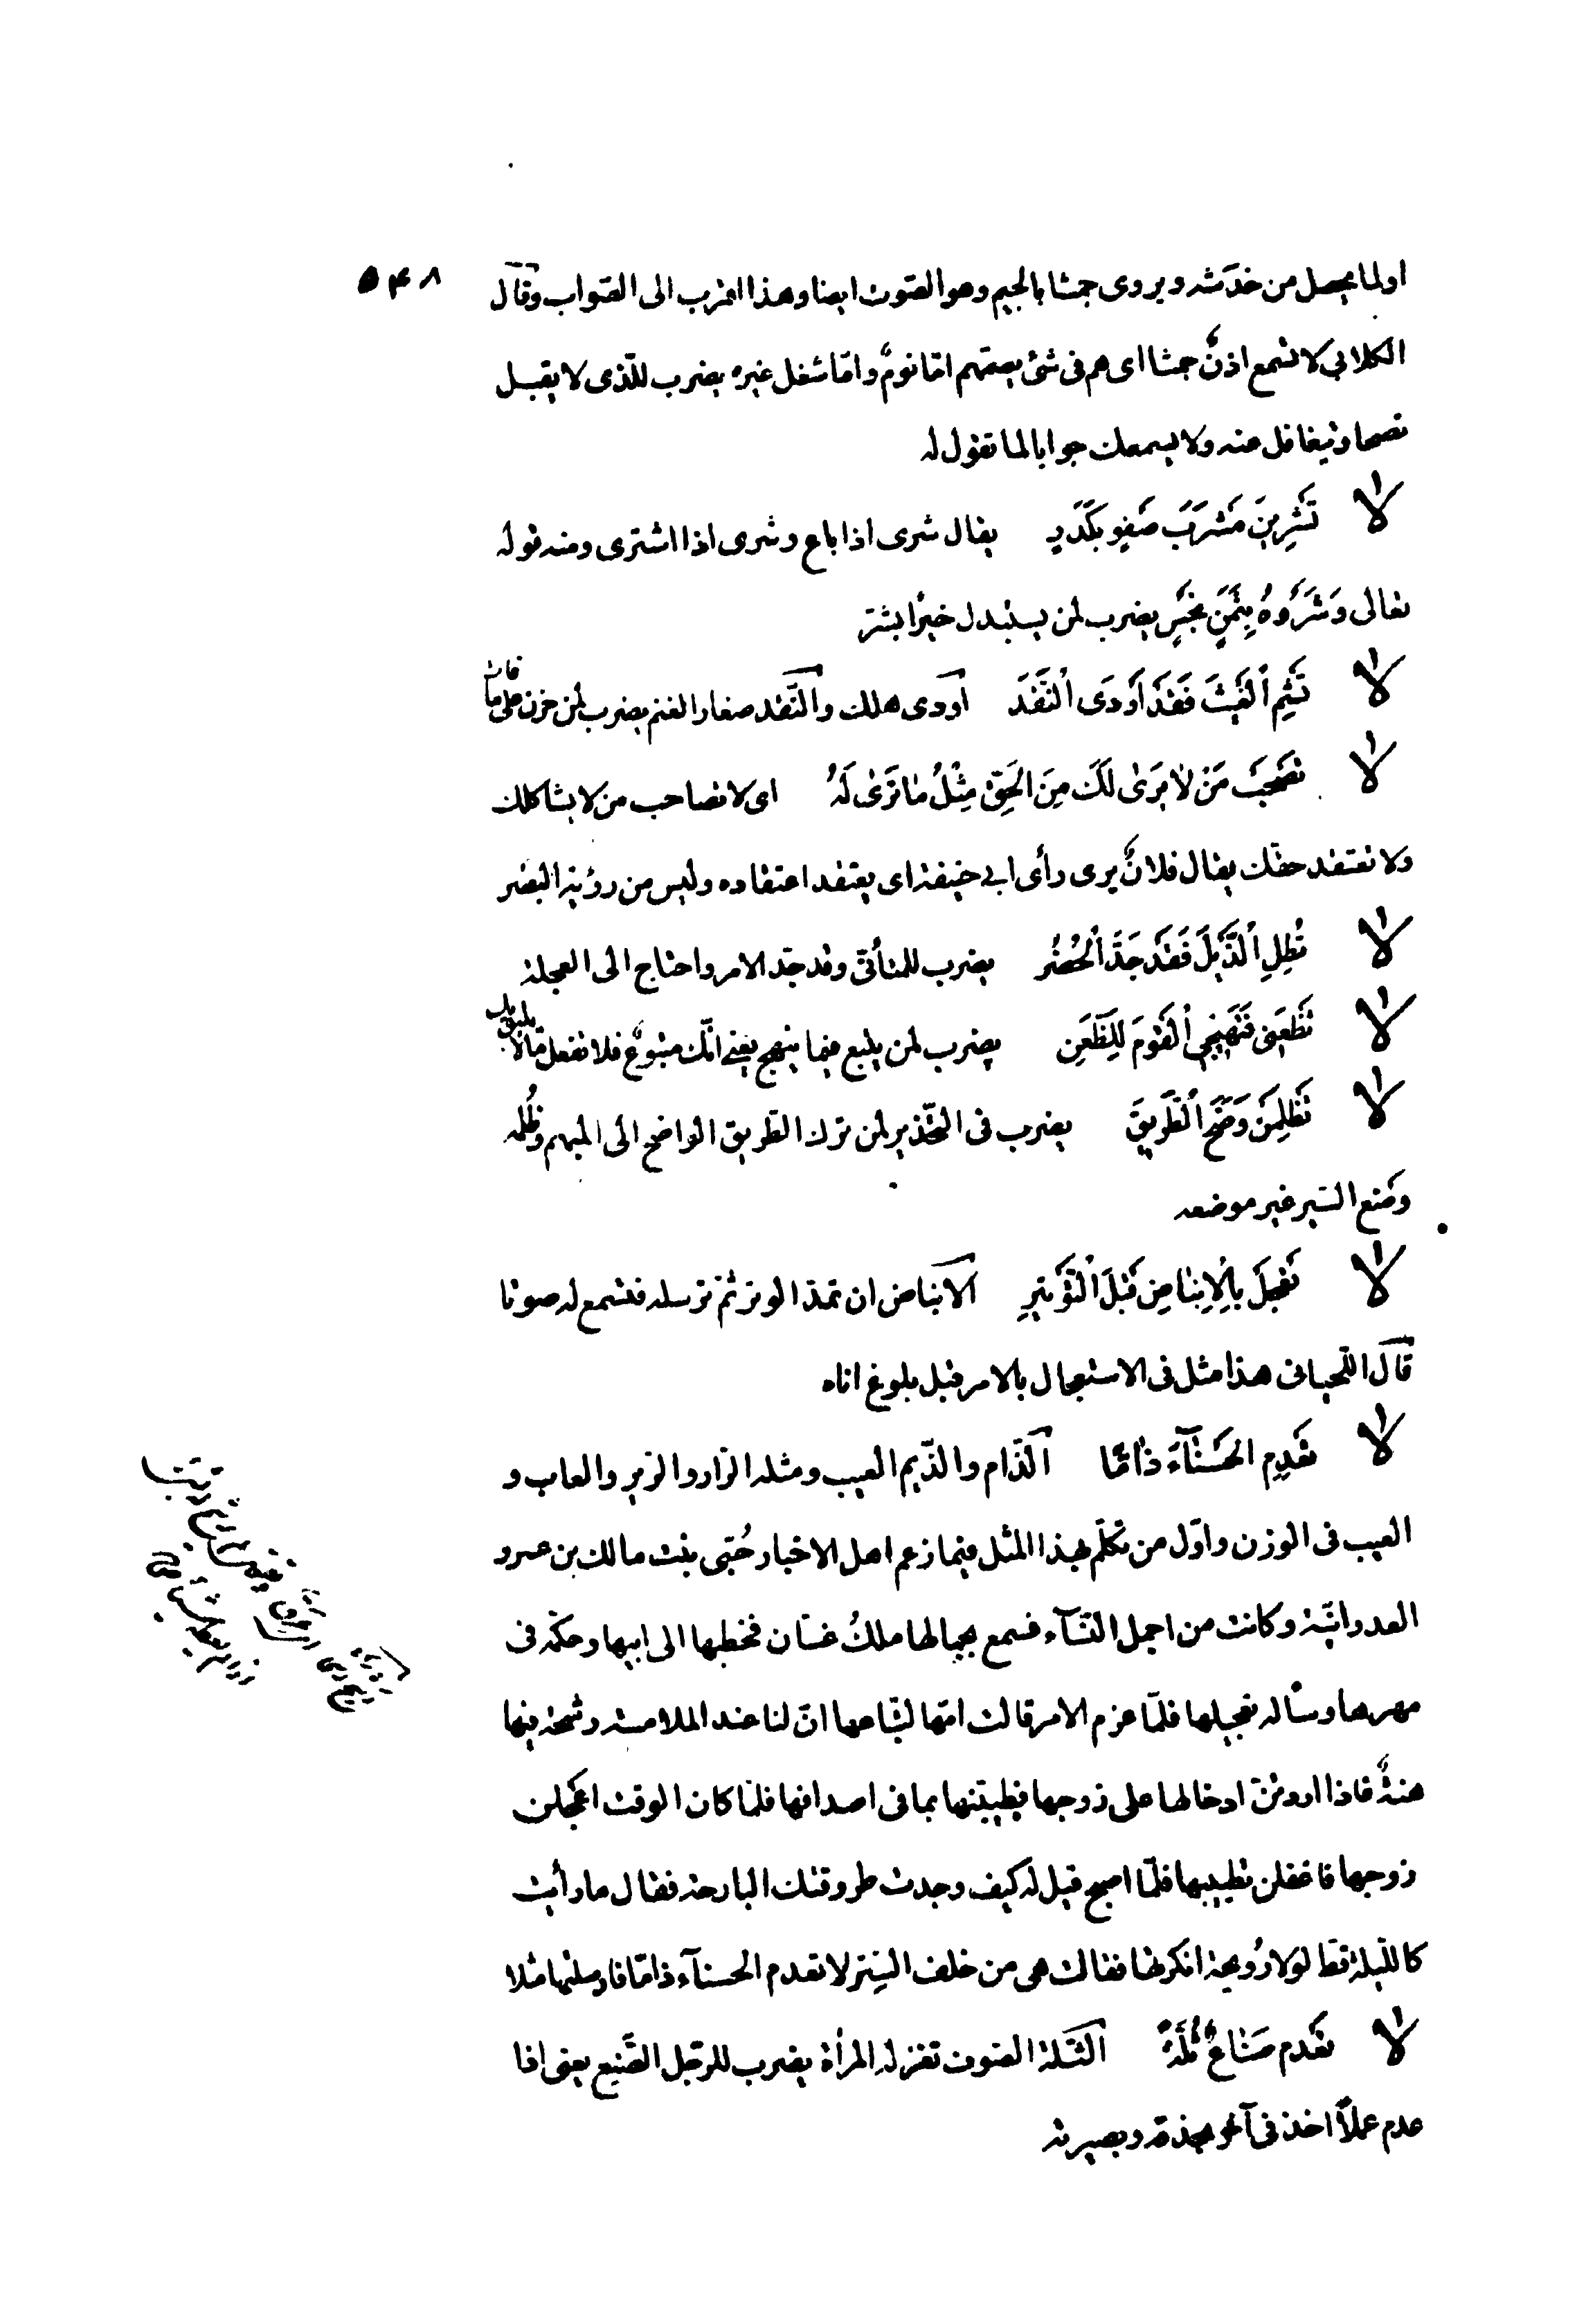 ۵۴۸
اولما يحصل من خدشه ويروى جمشا بالجيم وهو الصّوت ايضا وهذا اقرب الى الصّواب وقال
الكلابي لا تسمع اذنٌ جمشا اى هم فى شئ يصمّهم امّا نومٌ وامّا شغل غيره يضرب للّذى لا يقبل
نصحا ويتغافل عنه ولا يسمعك جوابا لما تقول له
لا تَشْرِيَنَّ مَشْرَبَ صَفْوٍ بِكَدَرٍ يقال شرى اذا باع وشرى اذا اشترى ومنه قوله
تعالى وَشَرَوْهُ بِثَمَنٍ بَخْسٍ يضرب لمن يستبدل خيرًا بشرّ
لا تَشِمِ اْلغَيْثَ فَقَدْ اَوْدَى اْلنَّقَدَ اَودى هلك والنّقد صغار الغنم يضرب لمن حزن على ما فات
لا تَصْحَبْ مَنْ لٰا يَرَىٰ لَكَ مِنَ الْحَقِّ مِثْلُ مٰا تَرَىٰ لَهُ اى لا تصاحب من لا يشاكلك
ولا تعتقد حقّك يقال فلانٌ يرى رأى ابى حنيفة اى يعتقد اعتقاده وليس من رؤية البصر
لا تُطِلِ اْلذَّيْلَ فَقَدْ جَدَّ اْلحُضْرُ يضرب للمتأنّى وقد جدّ الامر واحتاج الى العجلة
لا تَظْعَنِى فَتُهَيِّجِى اْلقَوْمَ لِلظَّعَنِ يضرب لمن يتبع فيما ينهج يعنى انّك متبوعٌ فلا تفعل ما لا يليق بك
لا تَظْلِمَنْ وَضَحَ اْلطَّرِيقَ يضرب فى التّحذير لمن ترك الطّريق الواضح الى المبهم وظُلْمه
وضع السّير غير موضعه
لا تَعْجَلْ بِاْلاِنْبٰاضِ قَبْلَ اْلتَّوْتِيرِ الانباض ان تمدّ الوتر ثمّ ترسله فتسمع له صوتا
قال اللّحيانى هذا مثل فى الاستعجال بالامر قبل بلوغ اناه
لا تَعْدِمِ الْحَسْنٰآءَ ذٰامًا الذّام والذّيم العيب ومثله الزّار والزّير والعاب و
العيب فى الوزن واوّل من تكلّم بهذا المثل فيما زعم اهل الاخبار حُبّى بنت مالك بن عمرو
العدوانيّة وكانت من اجمل النّسآء فسمع بجمالها ملكُ غسّان فخطبها الى ابيها وحكّمه فى
مهرها وسأله تعجيلها فلمّا عزم الامر قالت امّها لتبّاعها انّ لنا عند الملامسة رشحة فيها
هنةٌ فاذا اردتنّ ادخالها على زوجها فطيبنها بما فى اصدافها فلمّا كان الوقت اعجلهن
زوجها فاغفلن تطييبها فلمّا اصبح قيل له كيف وجدت طروقتك البارحة فقال ما رأيت
كاللّيلة قطّ لولا رُويحة انكرتها فقالت هى من خلف السّتر لا تعدم الحسنآء ذامّا فارسلتها مثلا
لا تَعْدم صَنٰاعٌ ثُلَّةً الثّلّة الصّوف تغزله المرأة يضرب للرّجل الصّنيع يعنى اذا
عدم عملاً اخذ فى آخر بحذقه وبصيرته